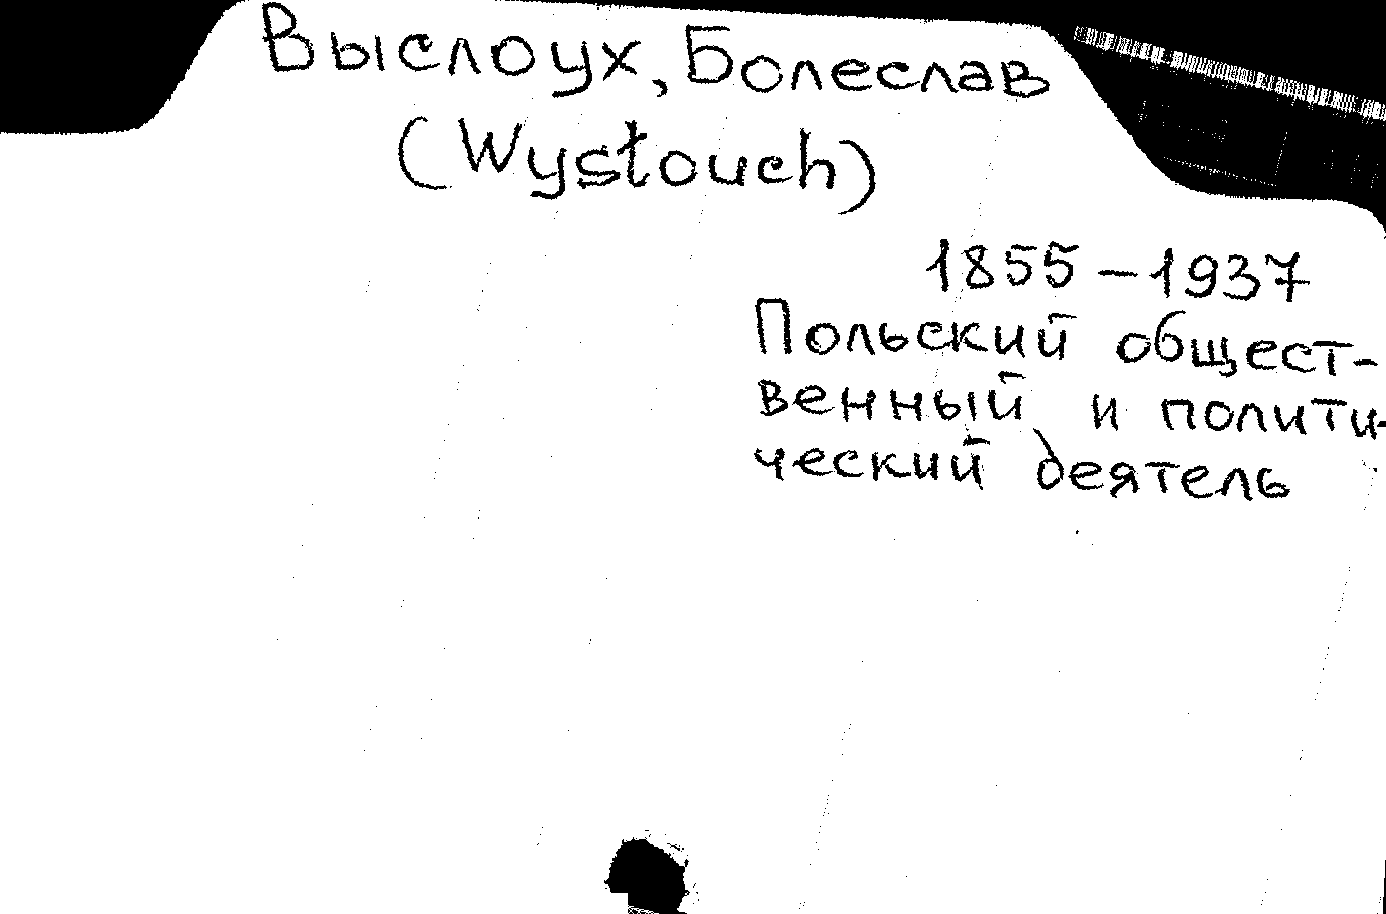 Выслоух, Болеслав
(Wysłouch)
1855 – 1937
Польский общест-
венный и полити-
ческий деятель